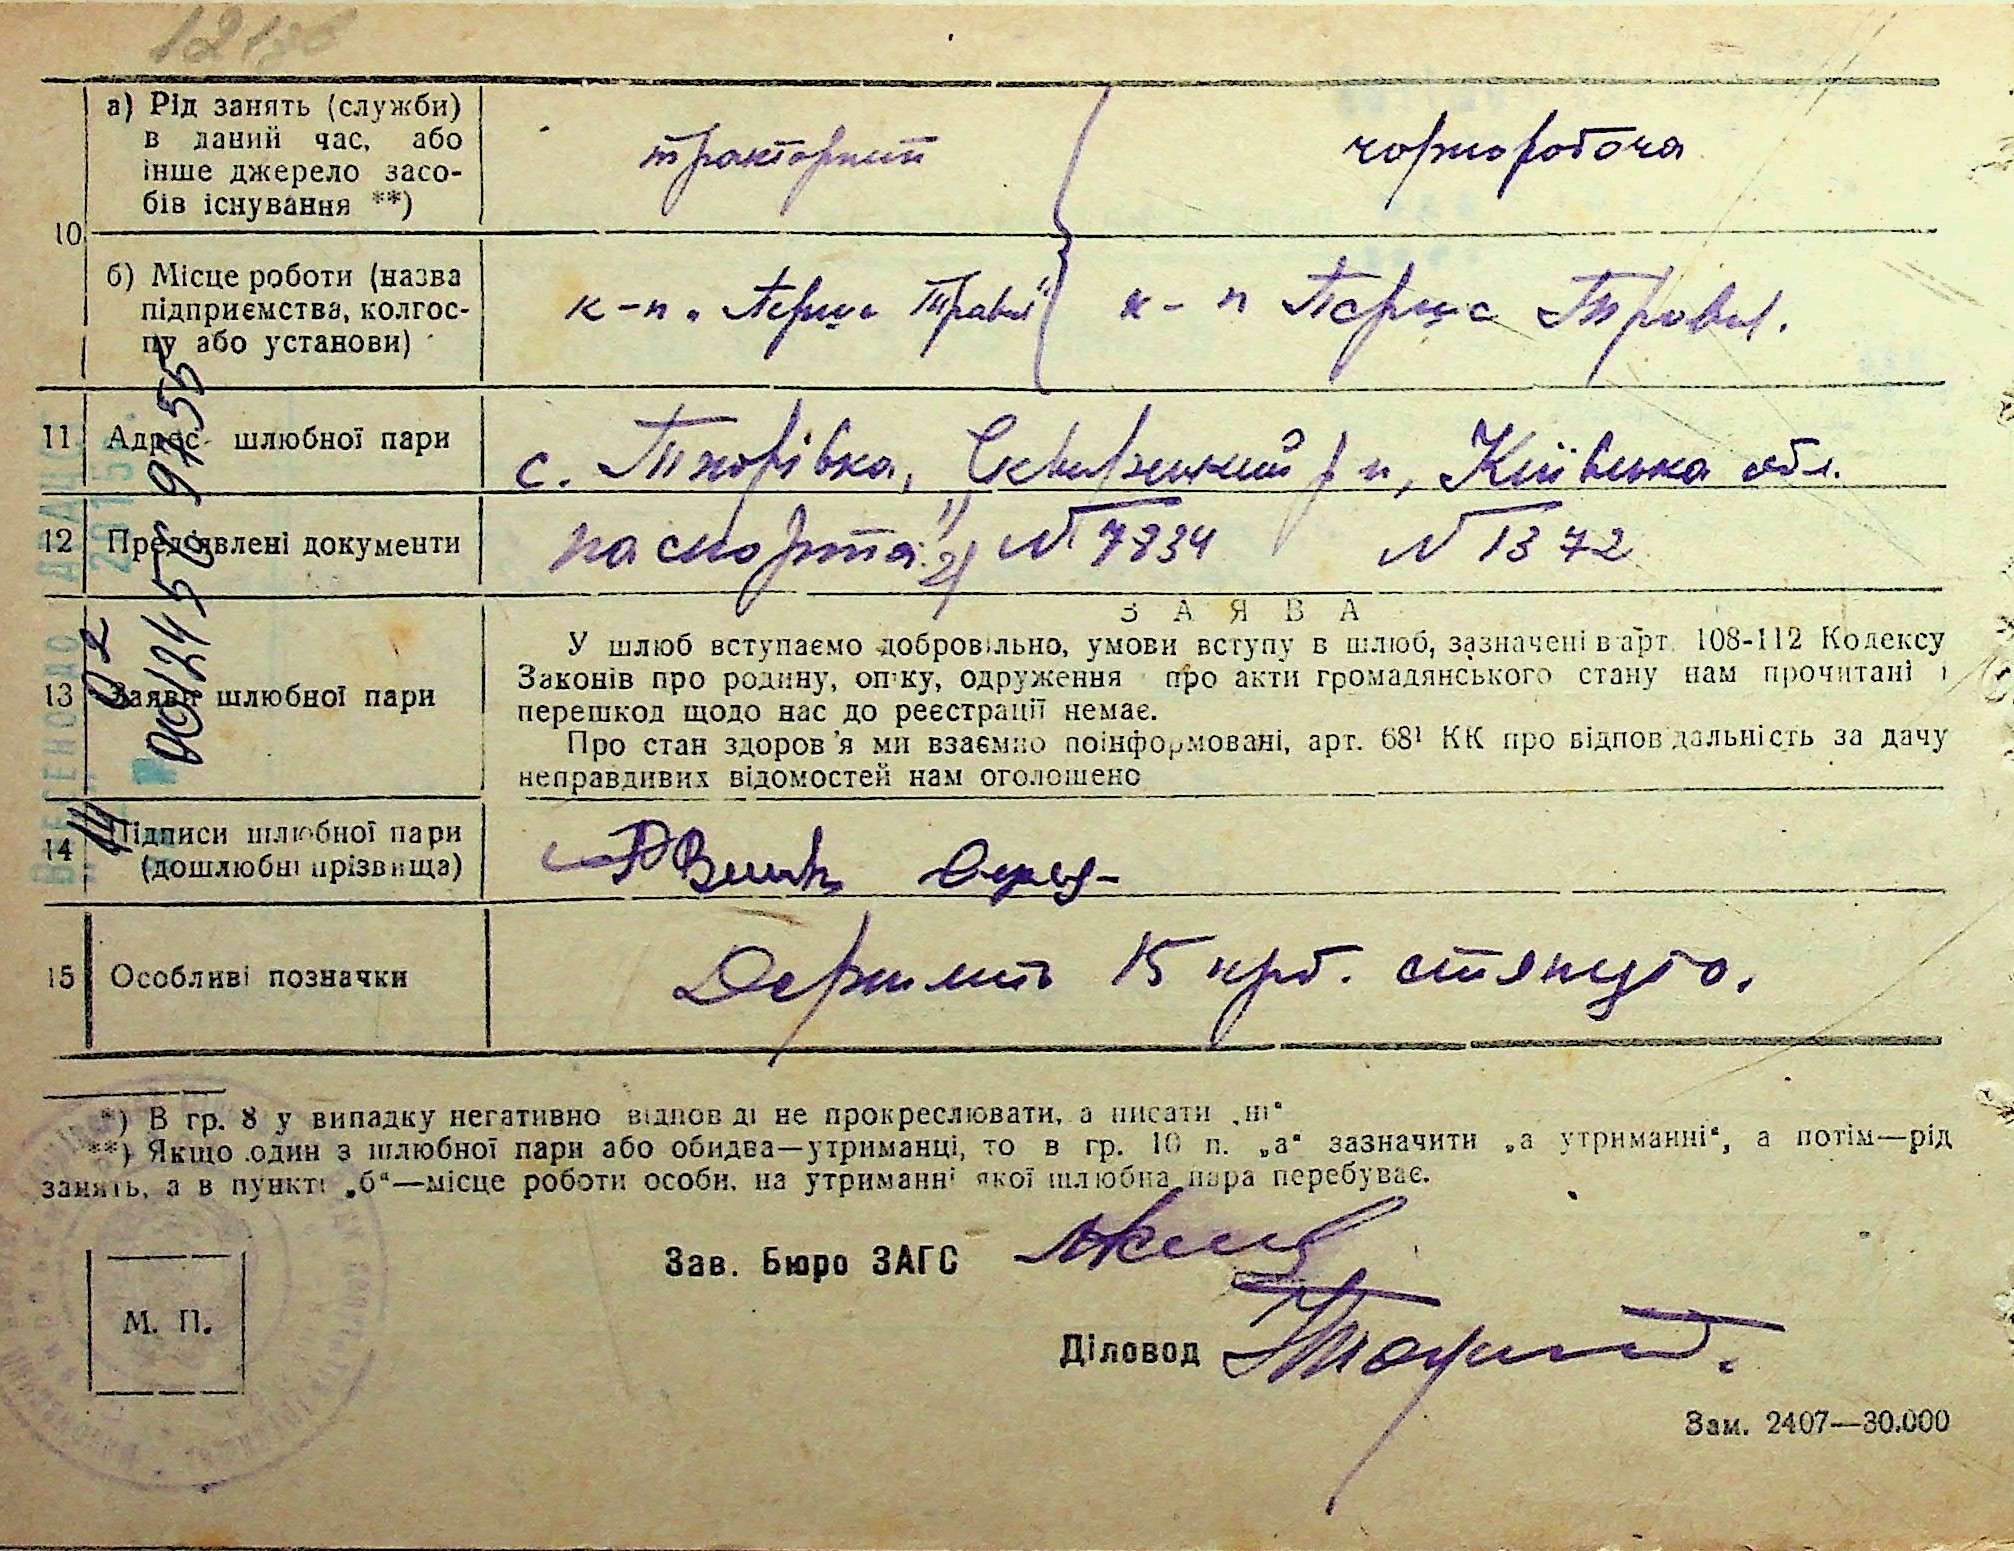 а) Рід занять (служби)
в даний час, або
інше джерело засо-
бів існування **)
чорноробоча
10
б) Місце роботи (назва
підприємства, колгос-
пу або установи)
к-п „Перше Травня"
к-п Перше Травня.
11 Адрес шлюбної пари
с. Тхорівка, Сквирський р-н, Київська обл.
12 Пред'явлені документи
паспорта: 1) N 7834 2) N 1372
13 Заява шлюбної пари
ЗАЯВА
У шлюб вступаємо добровільно, умови вступу в шлюб, зазначені в арт. 108-112 Кодексу
Законів про родину, опіку, одруження і про акти громадянського стану нам прочитані і
перешкод щодо нас до реєстрації немає.
Про стан здоров'я ми взаємно поінформовані, арт. 68¹ КК про відповідальність за дачу
неправдивих відомостей нам оголошено
14 Підписи шлюбної пари
(дошлюбні прізвища)
15 Особливі позначки
Держмито 15 крб. стягнуто.
*) В гр. 8 у випадку негативно відповіді не прокреслювати, а писати „ні"
**) Якщо один з шлюбної пари або обидва—утриманці, то в гр. 10 п. „а" зазначити „а утриманні", а потім—рід
занять, а в пункті „б"—місце роботи особи, на утриманні якої шлюбна пара перебуває.
Зав. Бюро ЗАГС
М. П.
Діловод
Зам. 2407—30.000